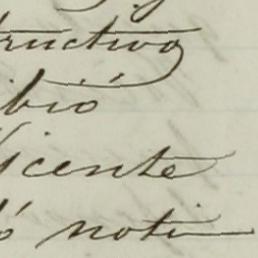 tructivo
ibió
Vicente
ó noti